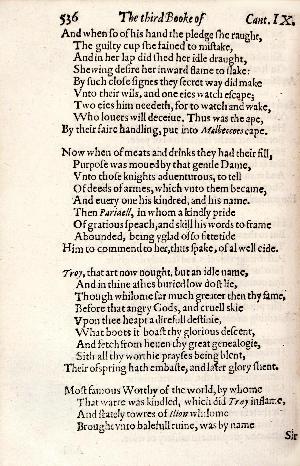 536 The third Booke of Cant. IX.
And when so of his hand the pledge she raught,
The guilty cup she fained to mistake,
And in her lap did shed her idle draught,
Shewing desire her inward flame to slake:
By such close signes they secret way did make
Vnto their wils, and one eies watch escape;
Two eies him needeth, for to watch and wake,
Who louers will deceiue. Thus was the ape,
By their faire handling, put into Malbeccoes cape.
Now when of meats and drinks they had their fill,
Purpose was moued by that gentle Dame,
Vnto those knights aduenturous, to tell
Of deeds of armes, which vnto them became,
And euery one his kindred, and his name.
Then Paridell, in whom a kindly pride
Of gratious speach, and skill his words to frame
Abounded, being yglad of so fitte tide
Him to commend to her, thus spake, of al well eide.
Troy, that art now nought, but an idle name,
And in thine ashes buried low dost lie,
Though whilome far much greater then thy fame,
Before that angry Gods, and cruell skie
Vpon thee heapt a direfull destinie,
What boots it boast thy glorious descent,
And fetch from heuen thy great genealogie,
Sith all thy worthie prayses being blent,
Their ofspring hath embaste, and later glory shent.
Most famous Worthy of the world, by whome
That warre was kindled, which did Troy inflame,
And stately towres of Ilion whilome
Brought vnto balefull ruine, was by name
Sir